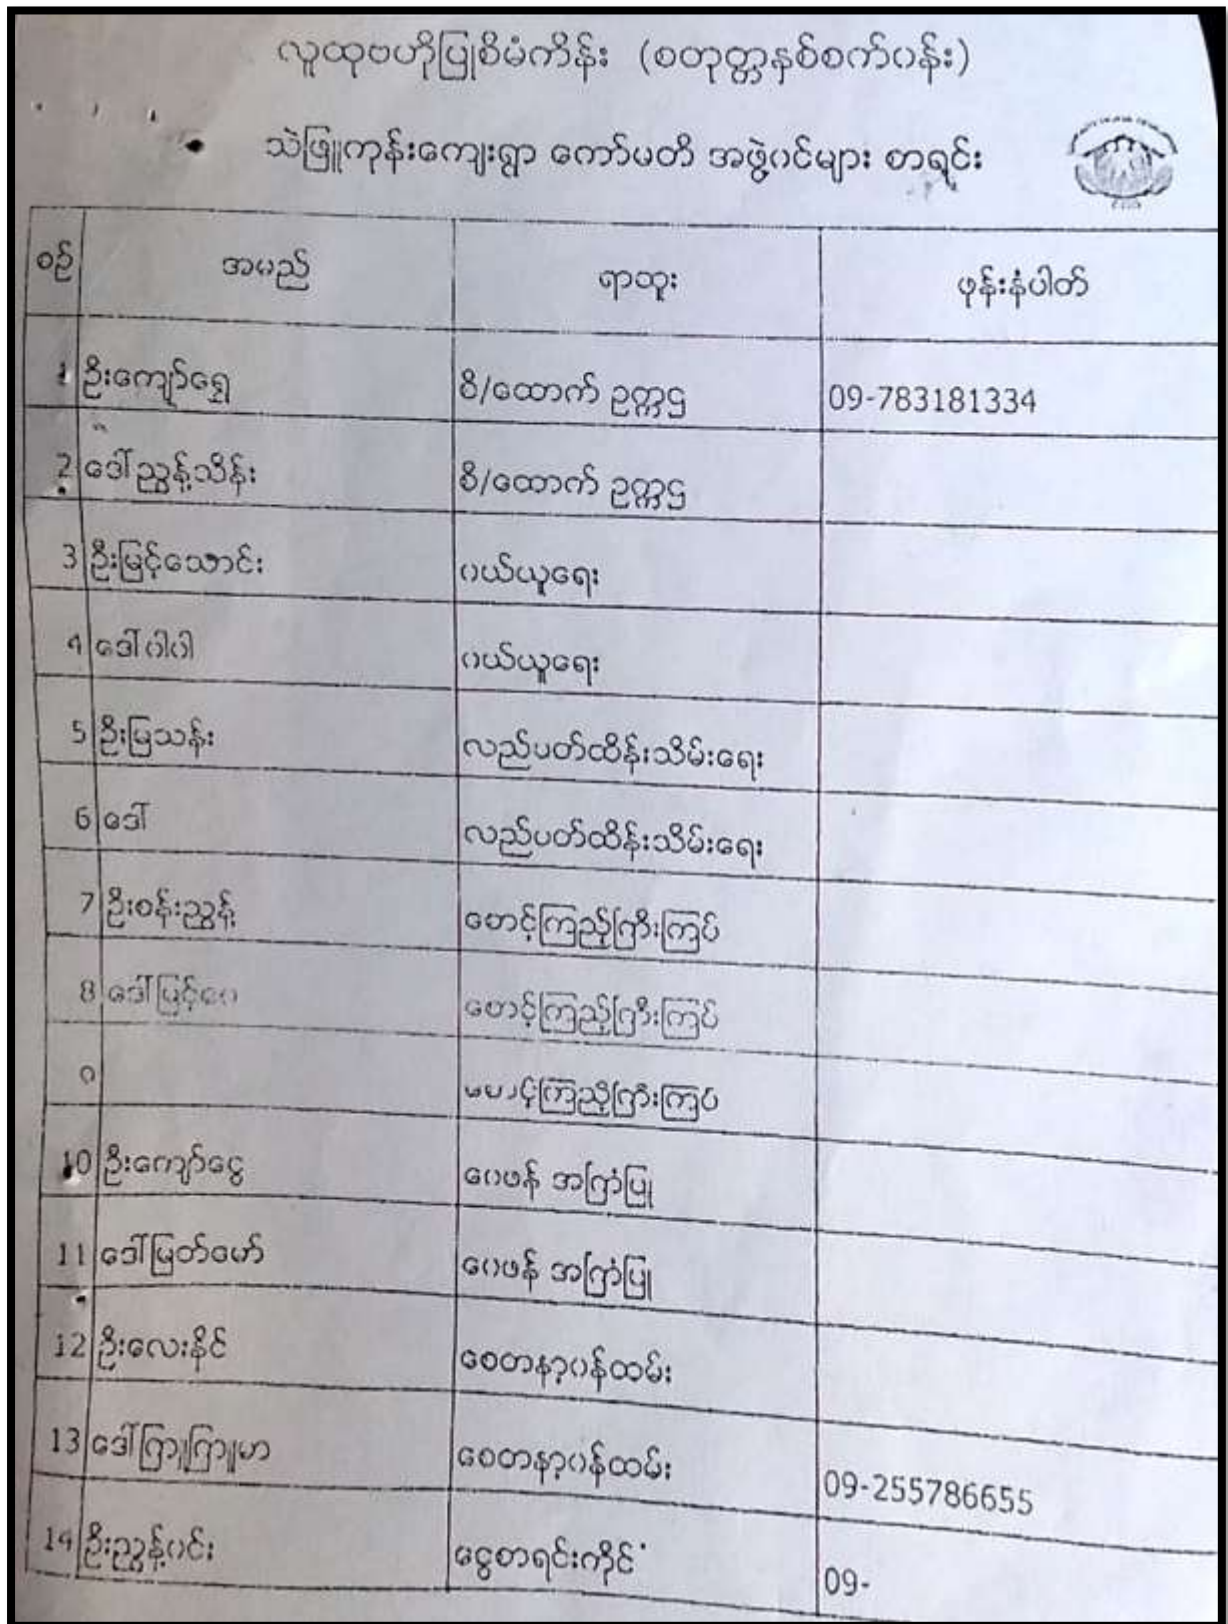 လူထုဗဟိုပြုစီမံကိန်း (စတုတ္ထနှစ်စက်ဝန်း)
သဲဖြူကုန်းကျေးရွာ ကော်မတီ အဖွဲ့ဝင်များ စာရင်း
စဉ် အမည် ရာထူး ဖုန်းနံပါတ်
1 ဦးကျော်ရွှေ စီ/ထောက် ဥက္ကဌ 09-783181334
2 ဒေါ်ညွန့်သိန်း စီ/ထောက် ဥက္ကဌ
3 ဦးမြင့်သောင်း ဝယ်ယူရေး
4 ဒေါ်ဝါဝါ ဝယ်ယူရေး
5 ဦးမြသန်း လည်ပတ်ထိန်းသိမ်းရေး
6 ဒေါ် လည်ပတ်ထိန်းသိမ်းရေး
7 ဦးစန်းညွန့် စောင့်ကြည့်ကြီးကြပ်
8 ဒေါ်မြင့်ဝေ စောင့်ကြည့်ကြီးကြပ်
စောင့်ကြည့်ကြီးကြပ်
10 ဦးကျော်ငွေ ဝေဖန် အကြံပြု
11 ဒေါ်မြတ်မော် ဝေဖန် အကြံပြု
12 ဦးလေးနိုင် စေတနာ့ဝန်ထမ်း
13 ဒေါ်ကြူကြူမာ စေတနာ့ဝန်ထမ်း 09-255786655
14 ဦးညွန့်ဝင်း ငွေစာရင်းကိုင် 09-